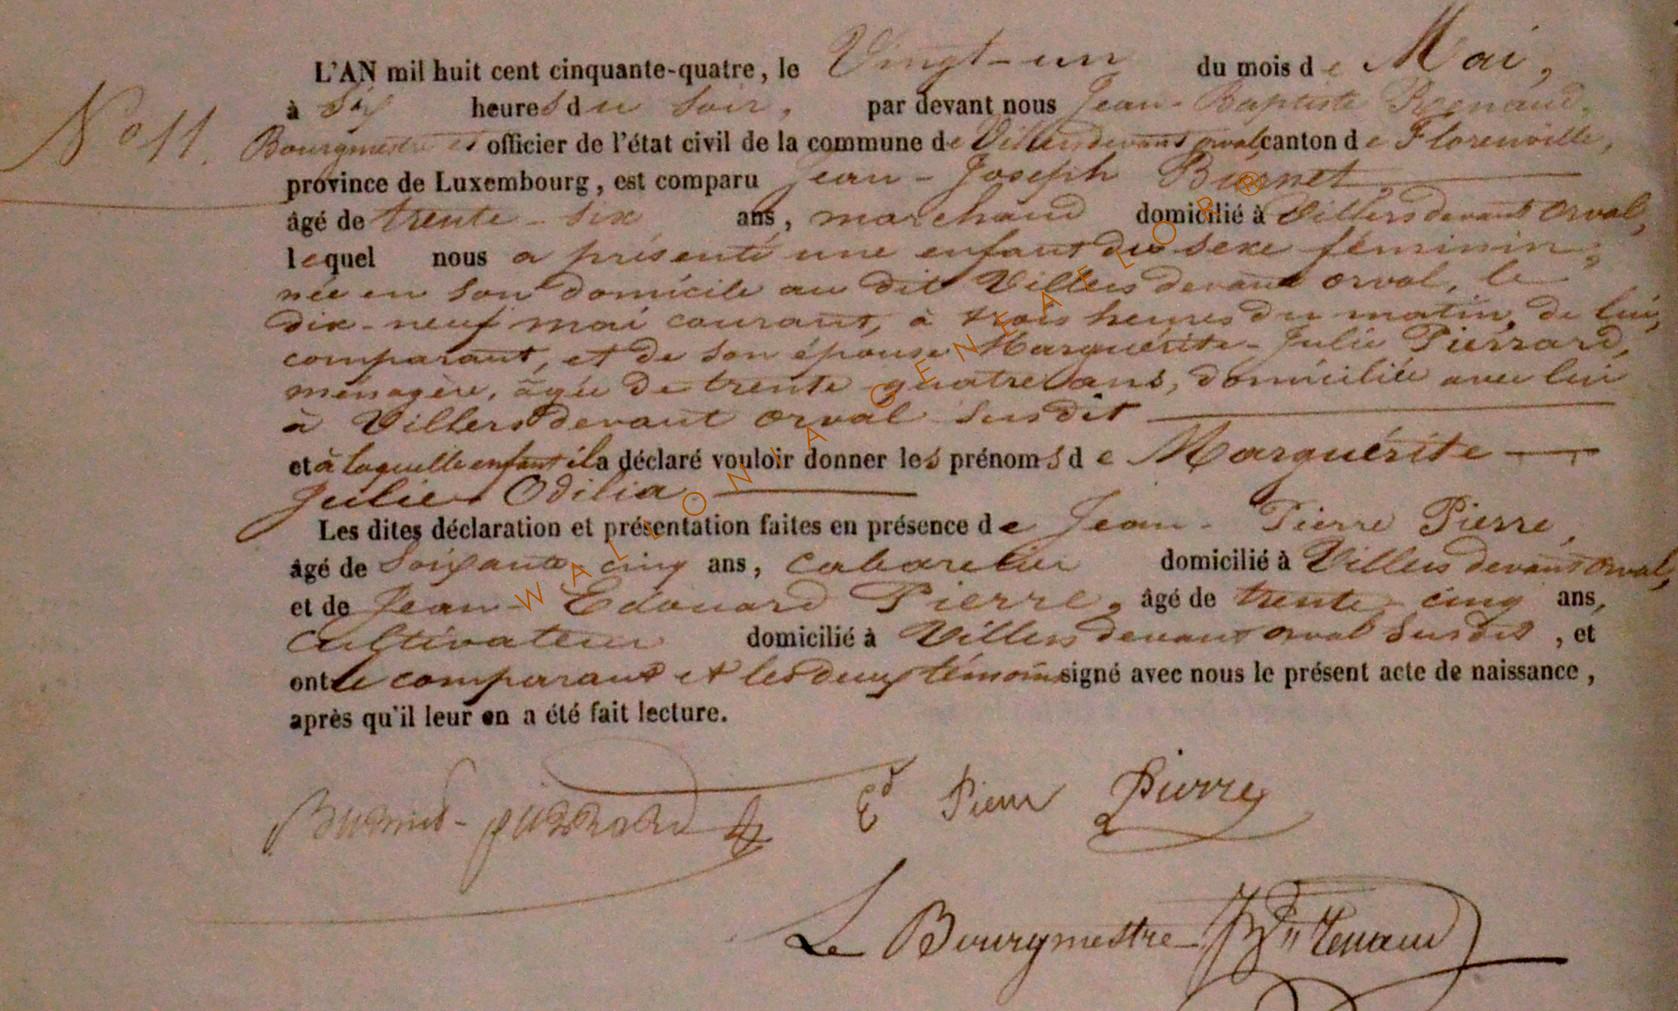 L'AN mil huit cent cinquante-quatre, le Vingt-un du mois de Mai,
à Six heures du soir, par devant nous Jean-Baptiste Renaud,
N° 11. Bourgmestre et officier de l'état civil de la commune de Villersdevant orval, canton de Florenville,
province de Luxembourg, est comparu Jean-Joseph Burnet,
âgé de trente-six ans, marchand domicilié à Villersdevant orval,
lequel nous a présenté une enfant du sexe féminin,
née en son domicile au dit Villersdevant orval, le
dix-neuf mai courant, à trois heures du matin, de lui,
comparant, et de son épouse Marguérite-Julie Pierrard,
ménagère, âgée de trente quatre ans, domiciliée avec lui
à Villersdevant orval susdit
et à laquelle enfant il a déclaré vouloir donner les prénoms de Marguérite
Julie Odilia
Les dites déclaration et présentation faites en présence de Jean-Pierre Pierre,
âgé de Soixante cinq ans, Cabaretier domicilié à Villersdevant orval,
et de Jean-Edouard Pierre, âgé de trente-cinq ans,
Cultivateur domicilié à Villersdevant orval susdit, et
ont le comparant et les deux témoins signé avec nous le présent acte de naissance,
après qu'il leur en a été fait lecture.
Burnet-pierrard Ed Pierre Pierre
Le Bourgmestre JBte Renaud